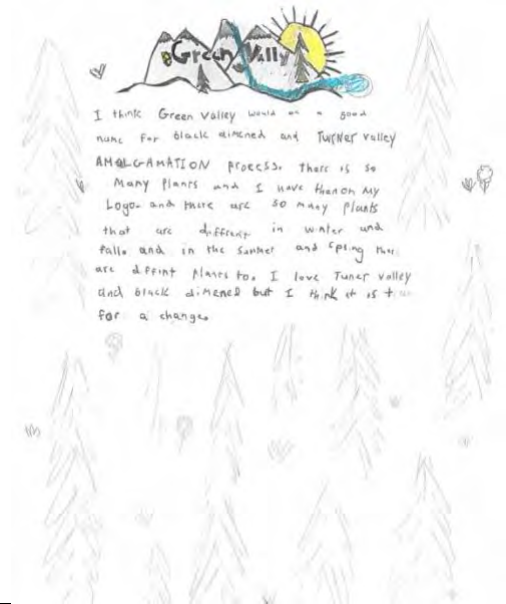 Green Vally
I think Green Valley would be a good
name for black dimened and TurNer valley
AMALGAMATION process. there is so
Many Plants and I have them on my
Logo. and there are so many plants
that are diffrent in winter and
falls and in the summer and spring ther
are diffrint Plants to. I love Tuner valley
and black dimened but I think it is time
for a change.